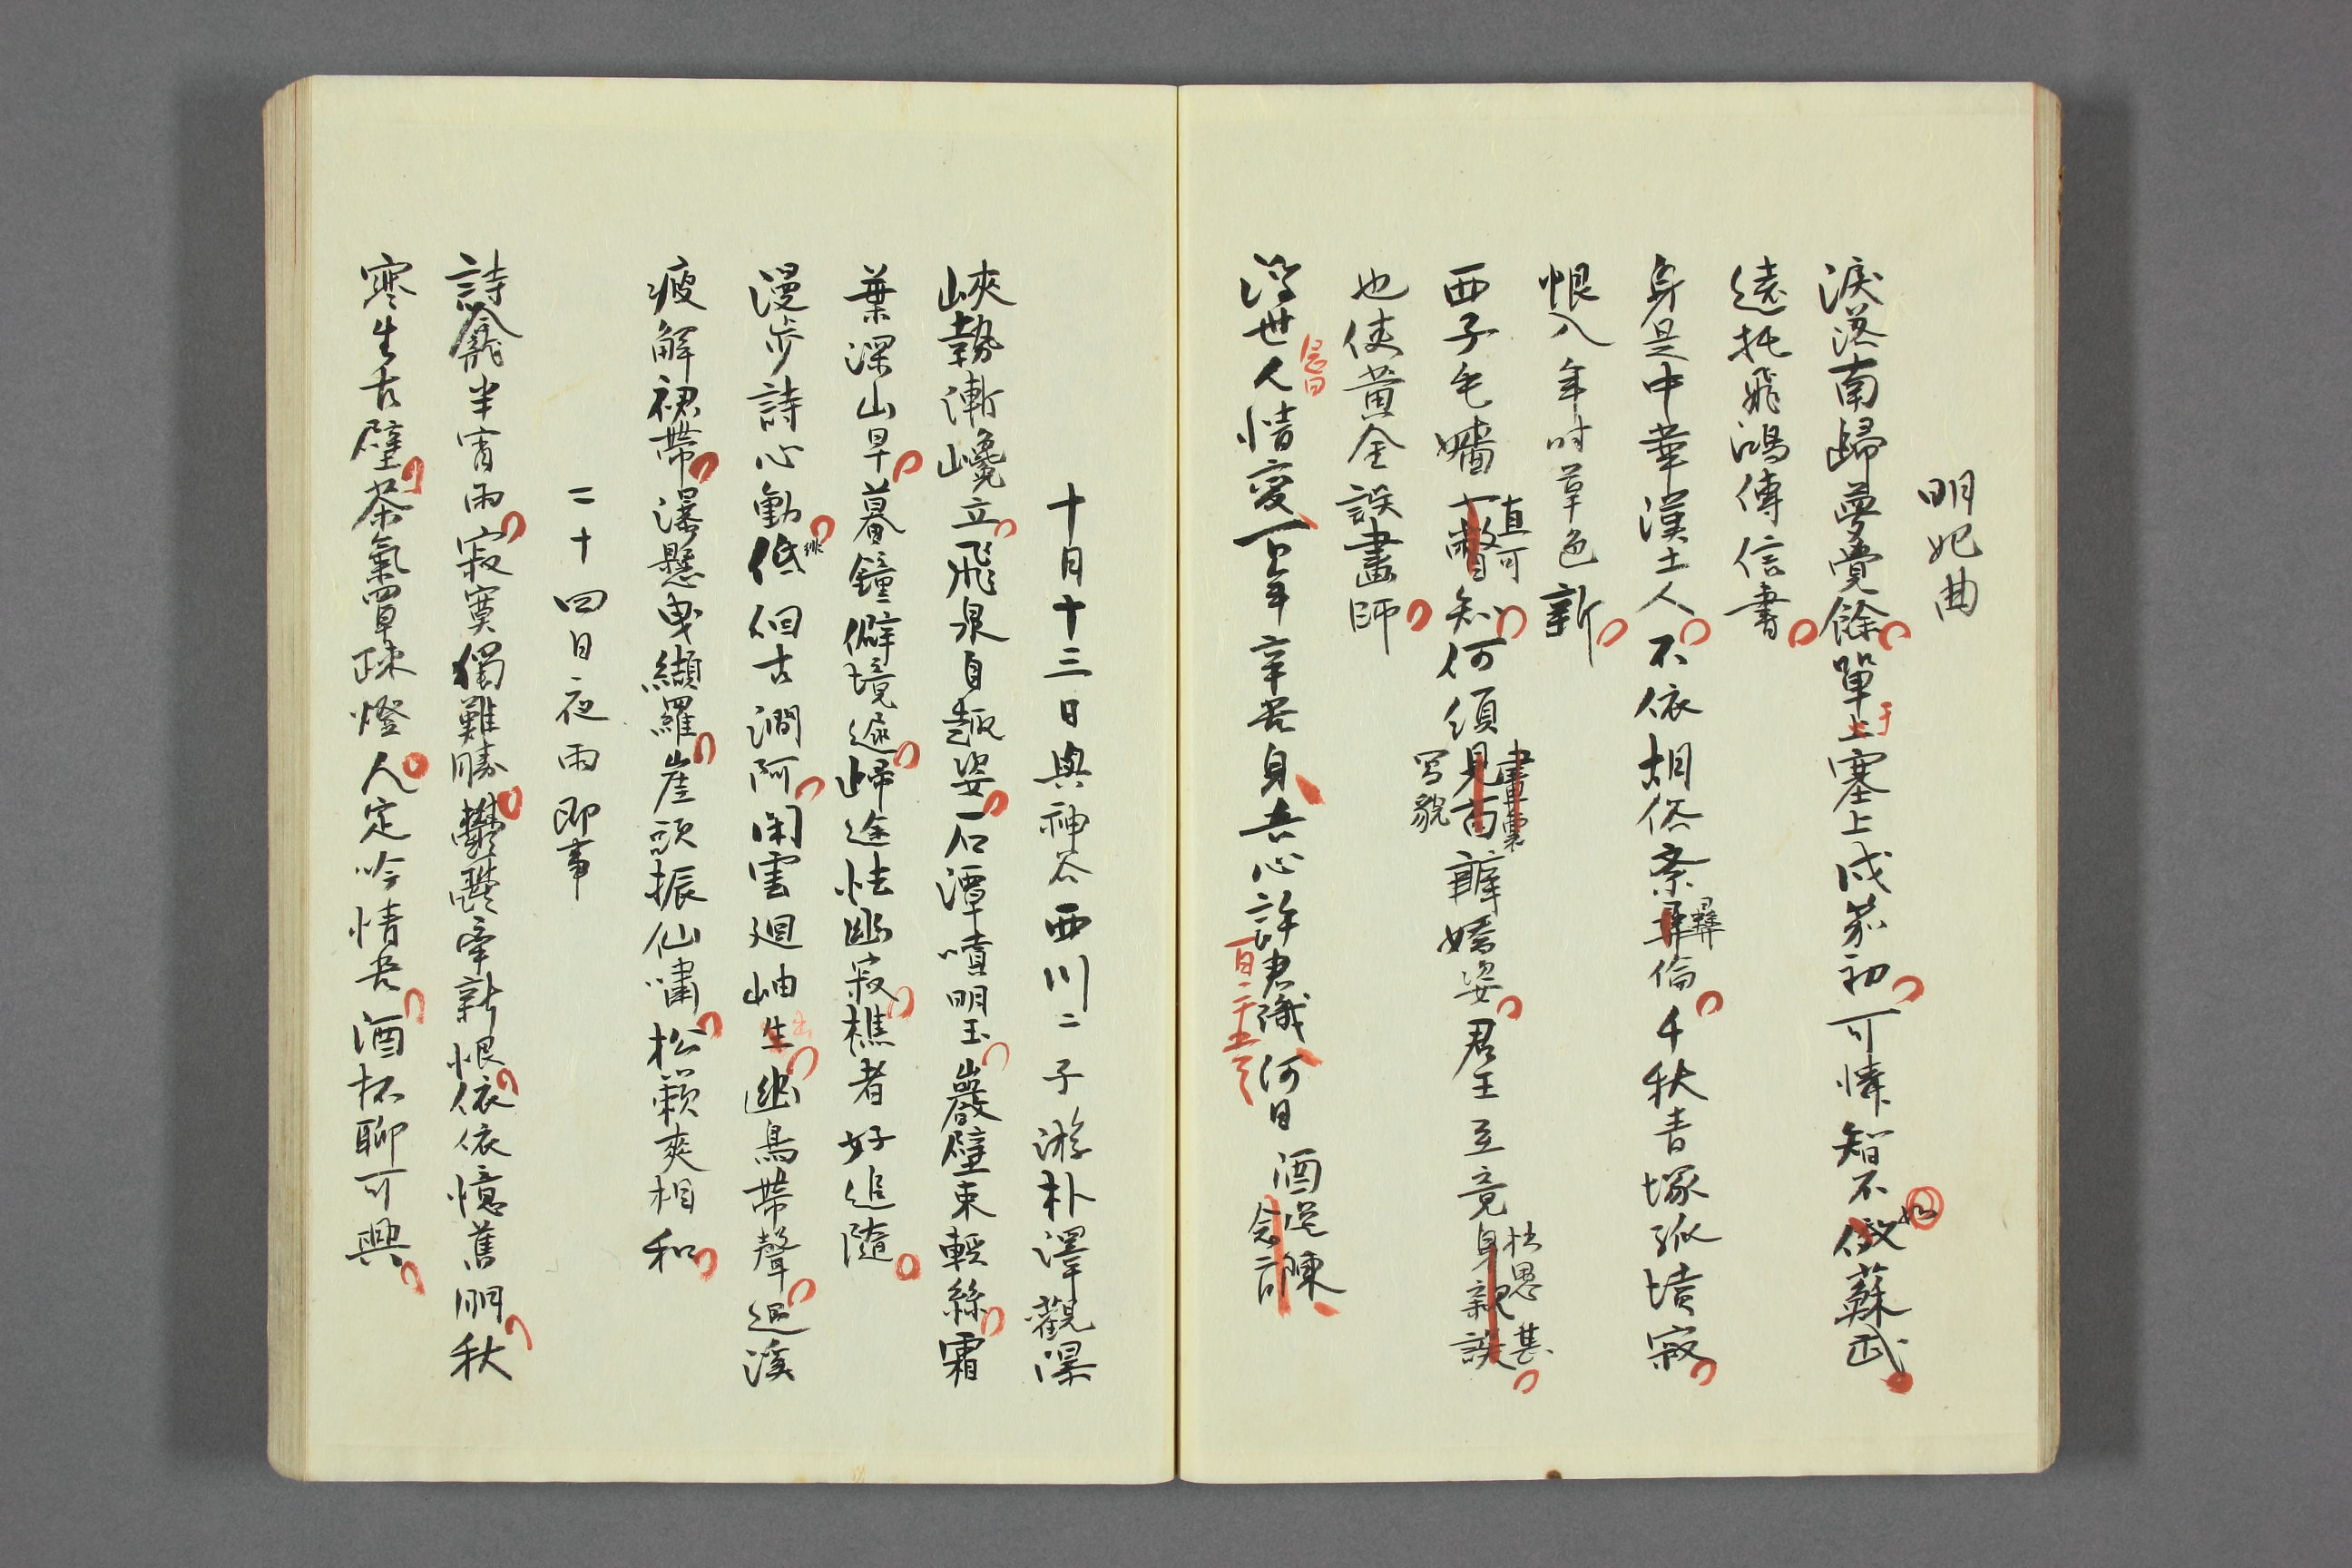 明妃曲
淚落南歸夢覺餘單于上塞上戍笳初可憐智不如似蘇武
遠托飛鴻傳信書
身是中華漢土人不依胡俗紊彝倫千秋青塚孤墳寂
恨入年時草色新
西子毛嬙直可知何須見苗畫裏写貌辨嬌姿君王豆竟身親誤怯恩甚
也使黃金誤畫師
浮世人情変百年辛苦身吾心許君識何日酒
十月十三日與神谷西川二子游朴澤觀瀑
峽勢漸巉立飛泉自趣姿一石潭噴明玉巖壁束輕絲霜
葉深山早暮鐘僻境遲歸途怯幽寂樵者好追隨
漫步詩心動低徘徊古澗阿閑雲廻岫生出幽鳥帶聲過溪
疲解裙帶瀑懸曳纈羅崖頭振仙嘯松籟爽相和
二十四日夜雨即事
詩龕半宵雨寂寞獨難勝鬱鬱牽新恨依依憶舊朋秋
寒生古壁茶氣罩疎燈人定吟情老酒杯聊可興